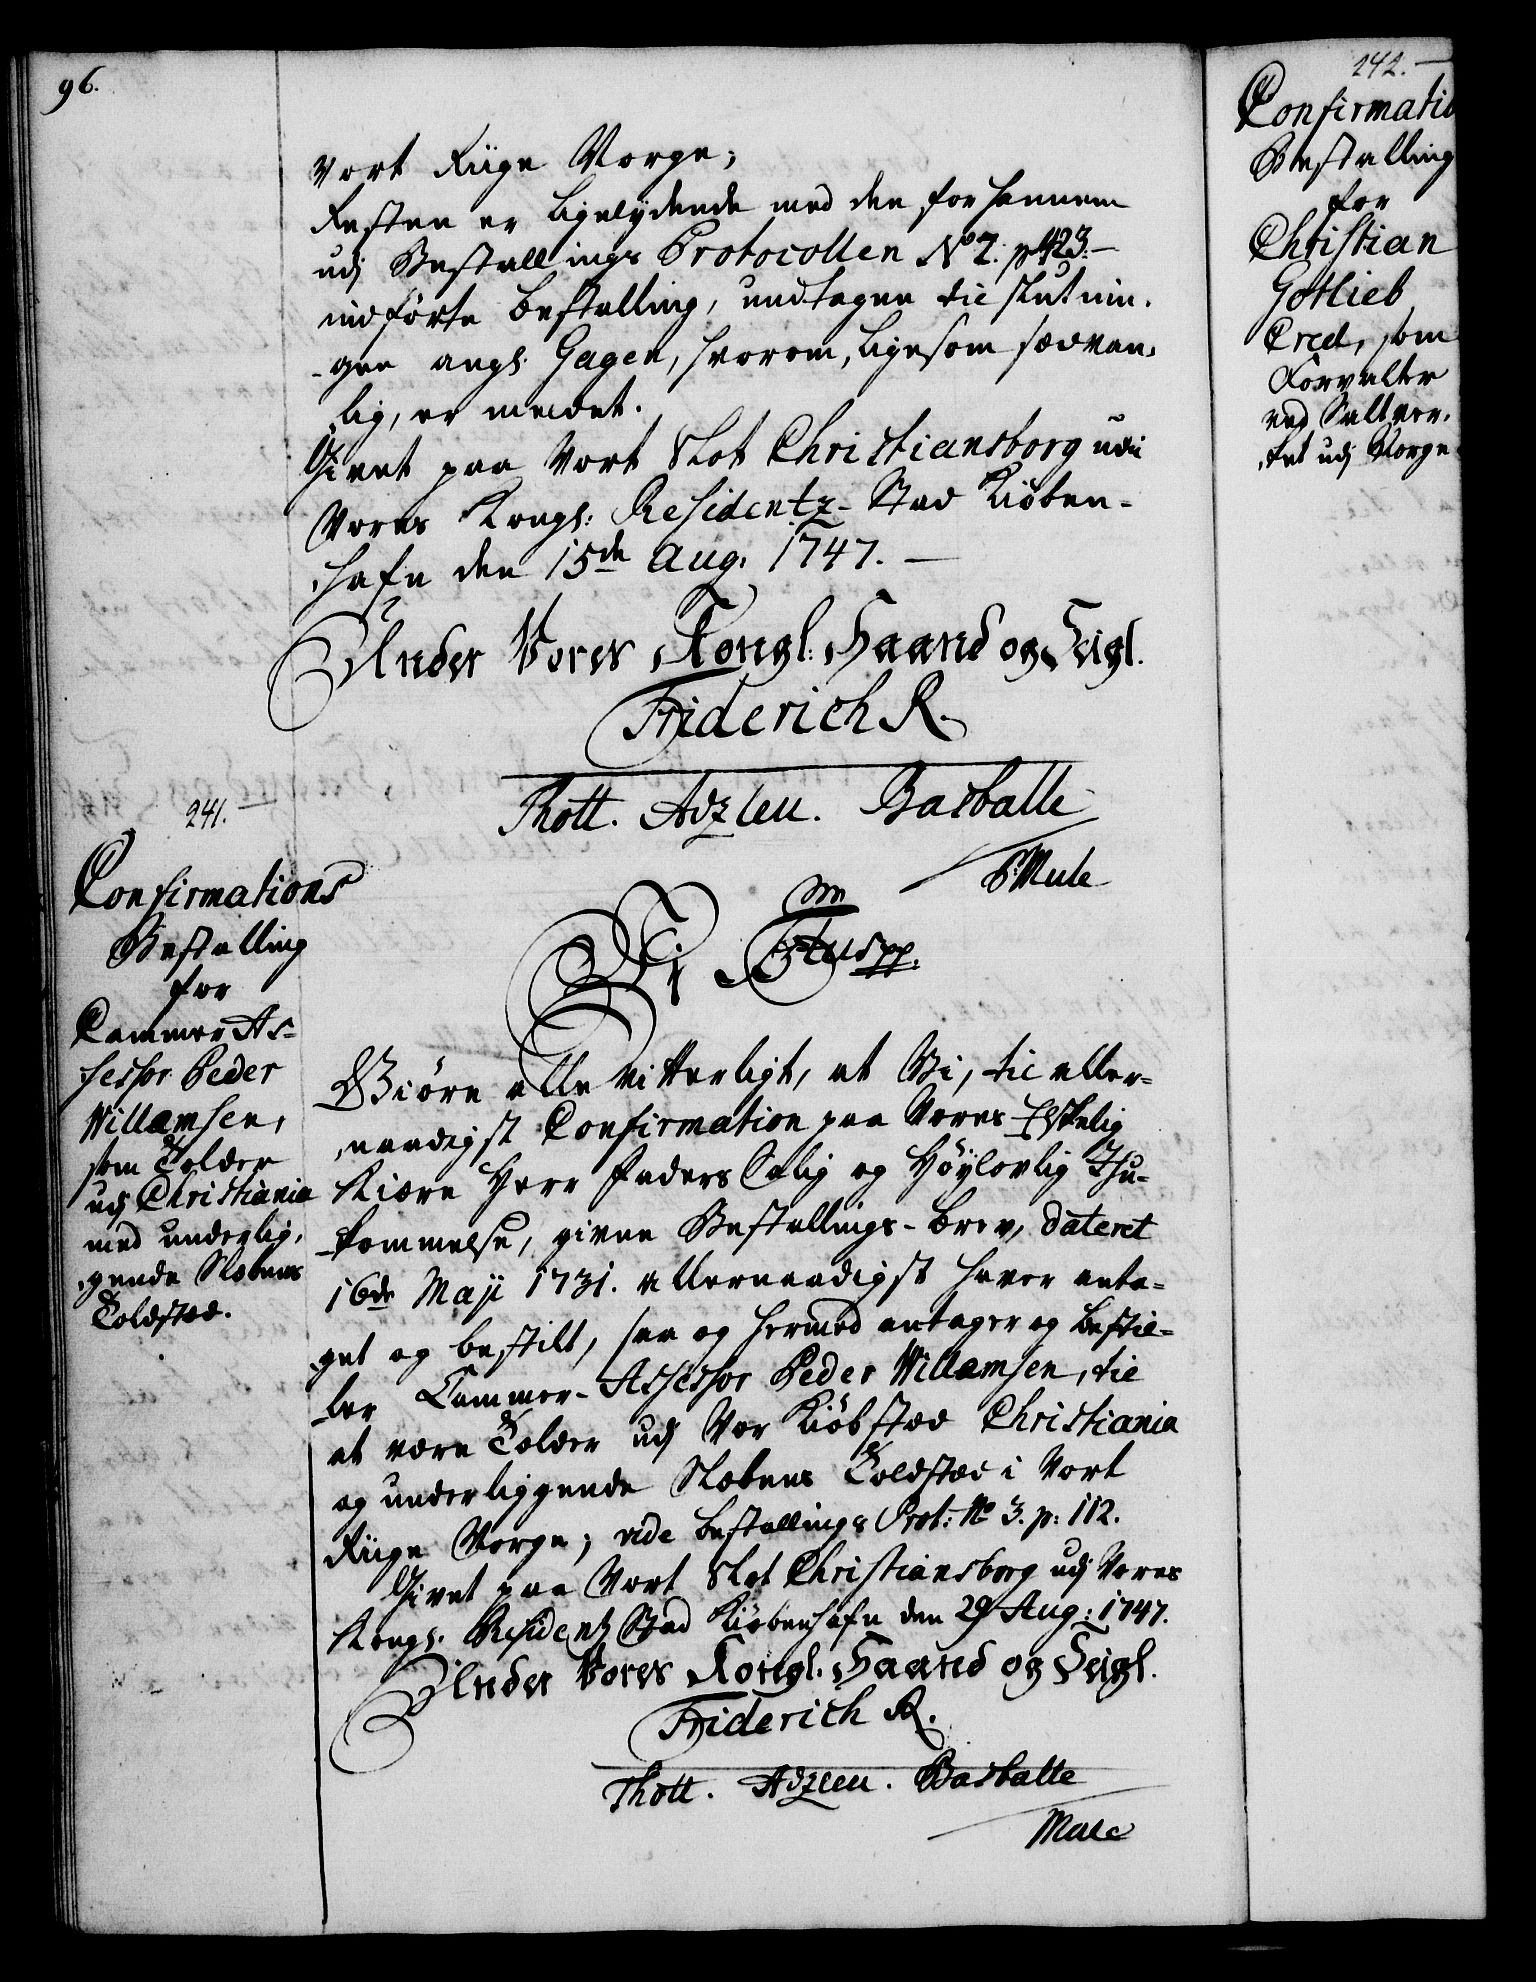 96.
Vort Riige Norge;
Resten er ligelydende med den for hannem
udj Bestallings Protocollen No 2. p 423.-
indförte bestalling, undtagen til slutnin-
gen angl. Gagen, hvorom, ligesom sædvan-
lig, er meldet.
Givet paa Vort Slot Christiansborg udi
Vores Kongl: Residentz-Stad Kiöben-
hafn den 15de Aug. 1747. -
Under Vores Kongl: Haand og Seigl.
Friderich R.
Thott. Adzleu. Basballe
PMule
241.
Confirmations
Bestalling
for
Cammer As-
sessor Peder
Willamsen,
som Tolder
udj Christiania
med underlig-
gende Slebens
Toldsted.
Vi Frid 5tus pp.
Giöre alle Vitterligt, at Vi, til aller-
naadigst Confirmation paa Vores Elskelig
Kiære Herr Faders Salig og Höylovlig Ihu-
kommelse, given Bestallings-brev, dateret
16de Maji 1731. allernaadigst haver anta-
get og bestilt, saa og hermed antager og bestil-
ler Cammer-Assessor Peder Willamsen, til
at være Tolder udj Vor Kiöbsted Christiania
og underliggende Slebens Toldsted i Vort
Riige Norge; vide bestallings Prot: No 3. p: 112.
Givet paa Vort Slot Christiansborg udj Vores
Kongl. Residentz Stad Kiöbenhafn den 29 Aug: 1747.
Under Vores Kongl. Haand og Seigl.
Friderich R.
Thott. Adzleu. Basballe
Mule
242. -
Confirmatio
Bestalling
for
Christian
Gotlieb
Cred, som
Forvalter
ved Saltver-
ket udj Norge